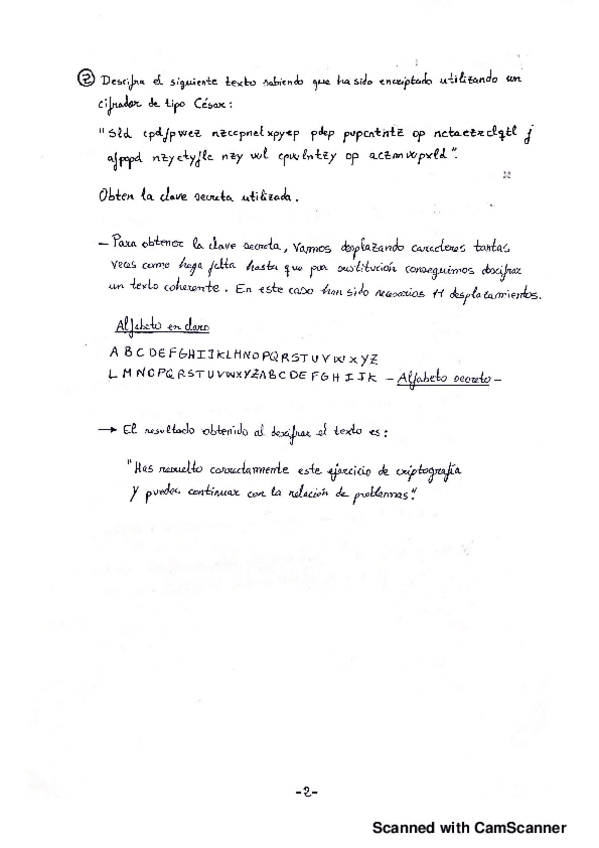 ② Descifra el siguiente texto sabiendo que ha sido encriptado utilizando un
cifrador de tipo César:
"Sld cpdfpwez nzccpnelxpyep pdep pupcntntz op nctaezrclqtl j
afpopd nzyetyflc nzy wl cpwlntzy op aczmwpxld".
Obten la clave secreta utilizada.
- Para obtener la clave secreta, vamos desplazando caracteres tantas
veces como haga falta hasta que por sustitución conseguimos descifrar
un texto coherente. En este caso han sido necesarios 11 desplazamientos.
Alfabeto en claro
A B C D E F G H I J K L M N O P Q R S T U V W X Y Z
L M N O P Q R S T U V W X Y Z A B C D E F G H I J K - Alfabeto secreto -
→ El resultado obtenido al descifrar el texto es:
"Has resuelto correctamente este ejercicio de criptografía
y puedes continuar con la relación de problemas".
-2-
Scanned with CamScanner